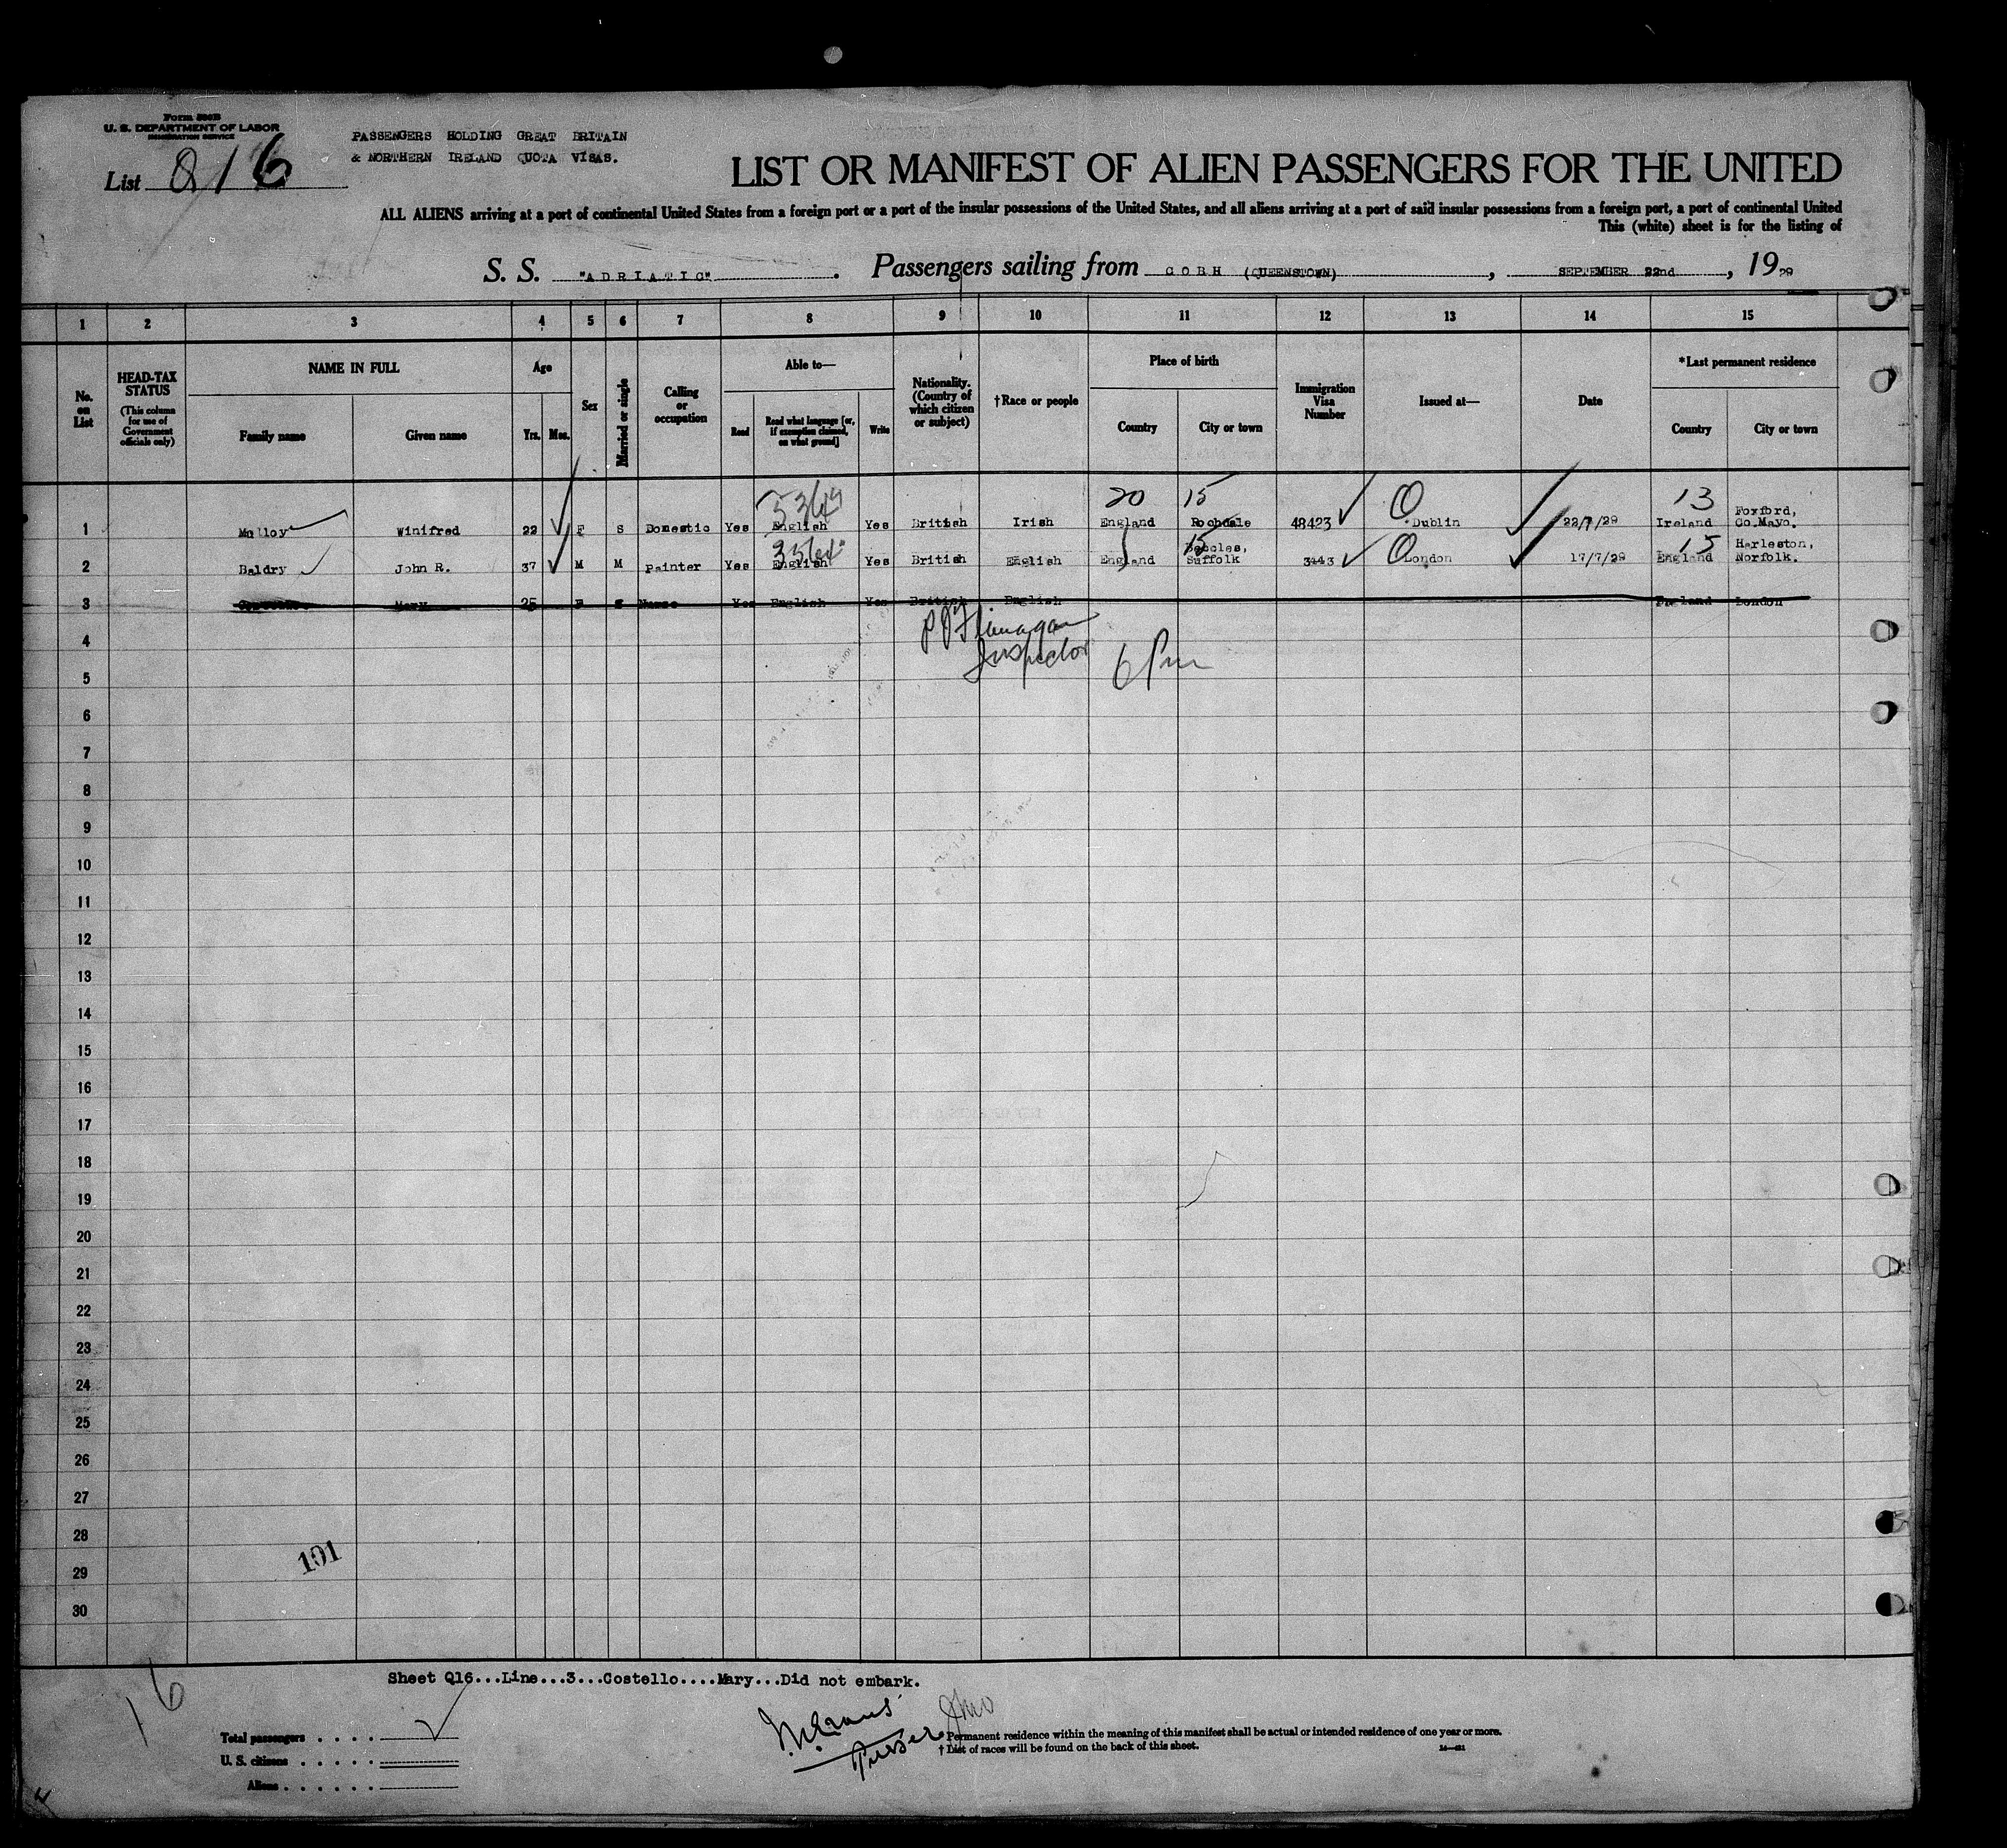 Form 500B
U. S. DEPARTMENT OF LABOR
IMMIGRATION SERVICE
List Q16
PASSENGERS HOLDING GREAT BRITAIN
& NORTHERN IRELAND QUOTA VISAS.
LIST OR MANIFEST OF ALIEN PASSENGERS FOR THE UNITED
ALL ALIENS arriving at a port of continental United States from a foreign port or a port of the insular possessions of the United States, and all aliens arriving at a port of said insular possessions from a foreign port, a port of continental United
This (white) sheet is for the listing of
S. S. "ADRIATIC". Passengers sailing from COBH (QUEENSTOWN), SEPTEMBER 22nd, 1929
1 2 3 4 5 6 7 8 9 10 11 12 13 14 15
No. on List
HEAD-TAX STATUS (This column for use of Government officials only)
NAME IN FULL
Family name Given name
Age
Yrs. Mos.
Sex
Married or single
Calling or occupation
Able to—
Read Read what language [or, if exemption claimed, on what ground] Write
Nationality. (Country of which citizen or subject)
†Race or people
Place of birth
Country City or town
Immigration Visa Number
Issued at—
Date
*Last permanent residence
Country City or town
20 15 13
1 Malloy Winifred 22 F S Domestic Yes English Yes British Irish England Rochdale 48423 Dublin 22/7/29 Ireland Foxford, Co.Mayo.
15 15
2 Baldry John R. 37 M M Painter Yes English Yes British English England Beccles, Suffolk 3443 London 17/7/29 England Harleston, Norfolk.
3 Mary 25 F S Nurse Yes English Yes British English England London
4
P P Flanagan
Inspector 6 Pm
5
6
7
8
9
10
11
12
13
14
15
16
17
18
19
20
21
22
23
24
25
26
27
28
29
30
101
16
Sheet Q16...Line...3...Costello....Mary...Did not embark.
Purser
Total passengers . . . .
U. S. citizens . . . . .
Aliens . . . . . .
* Permanent residence within the meaning of this manifest shall be actual or intended residence of one year or more.
† List of races will be found on the back of this sheet.